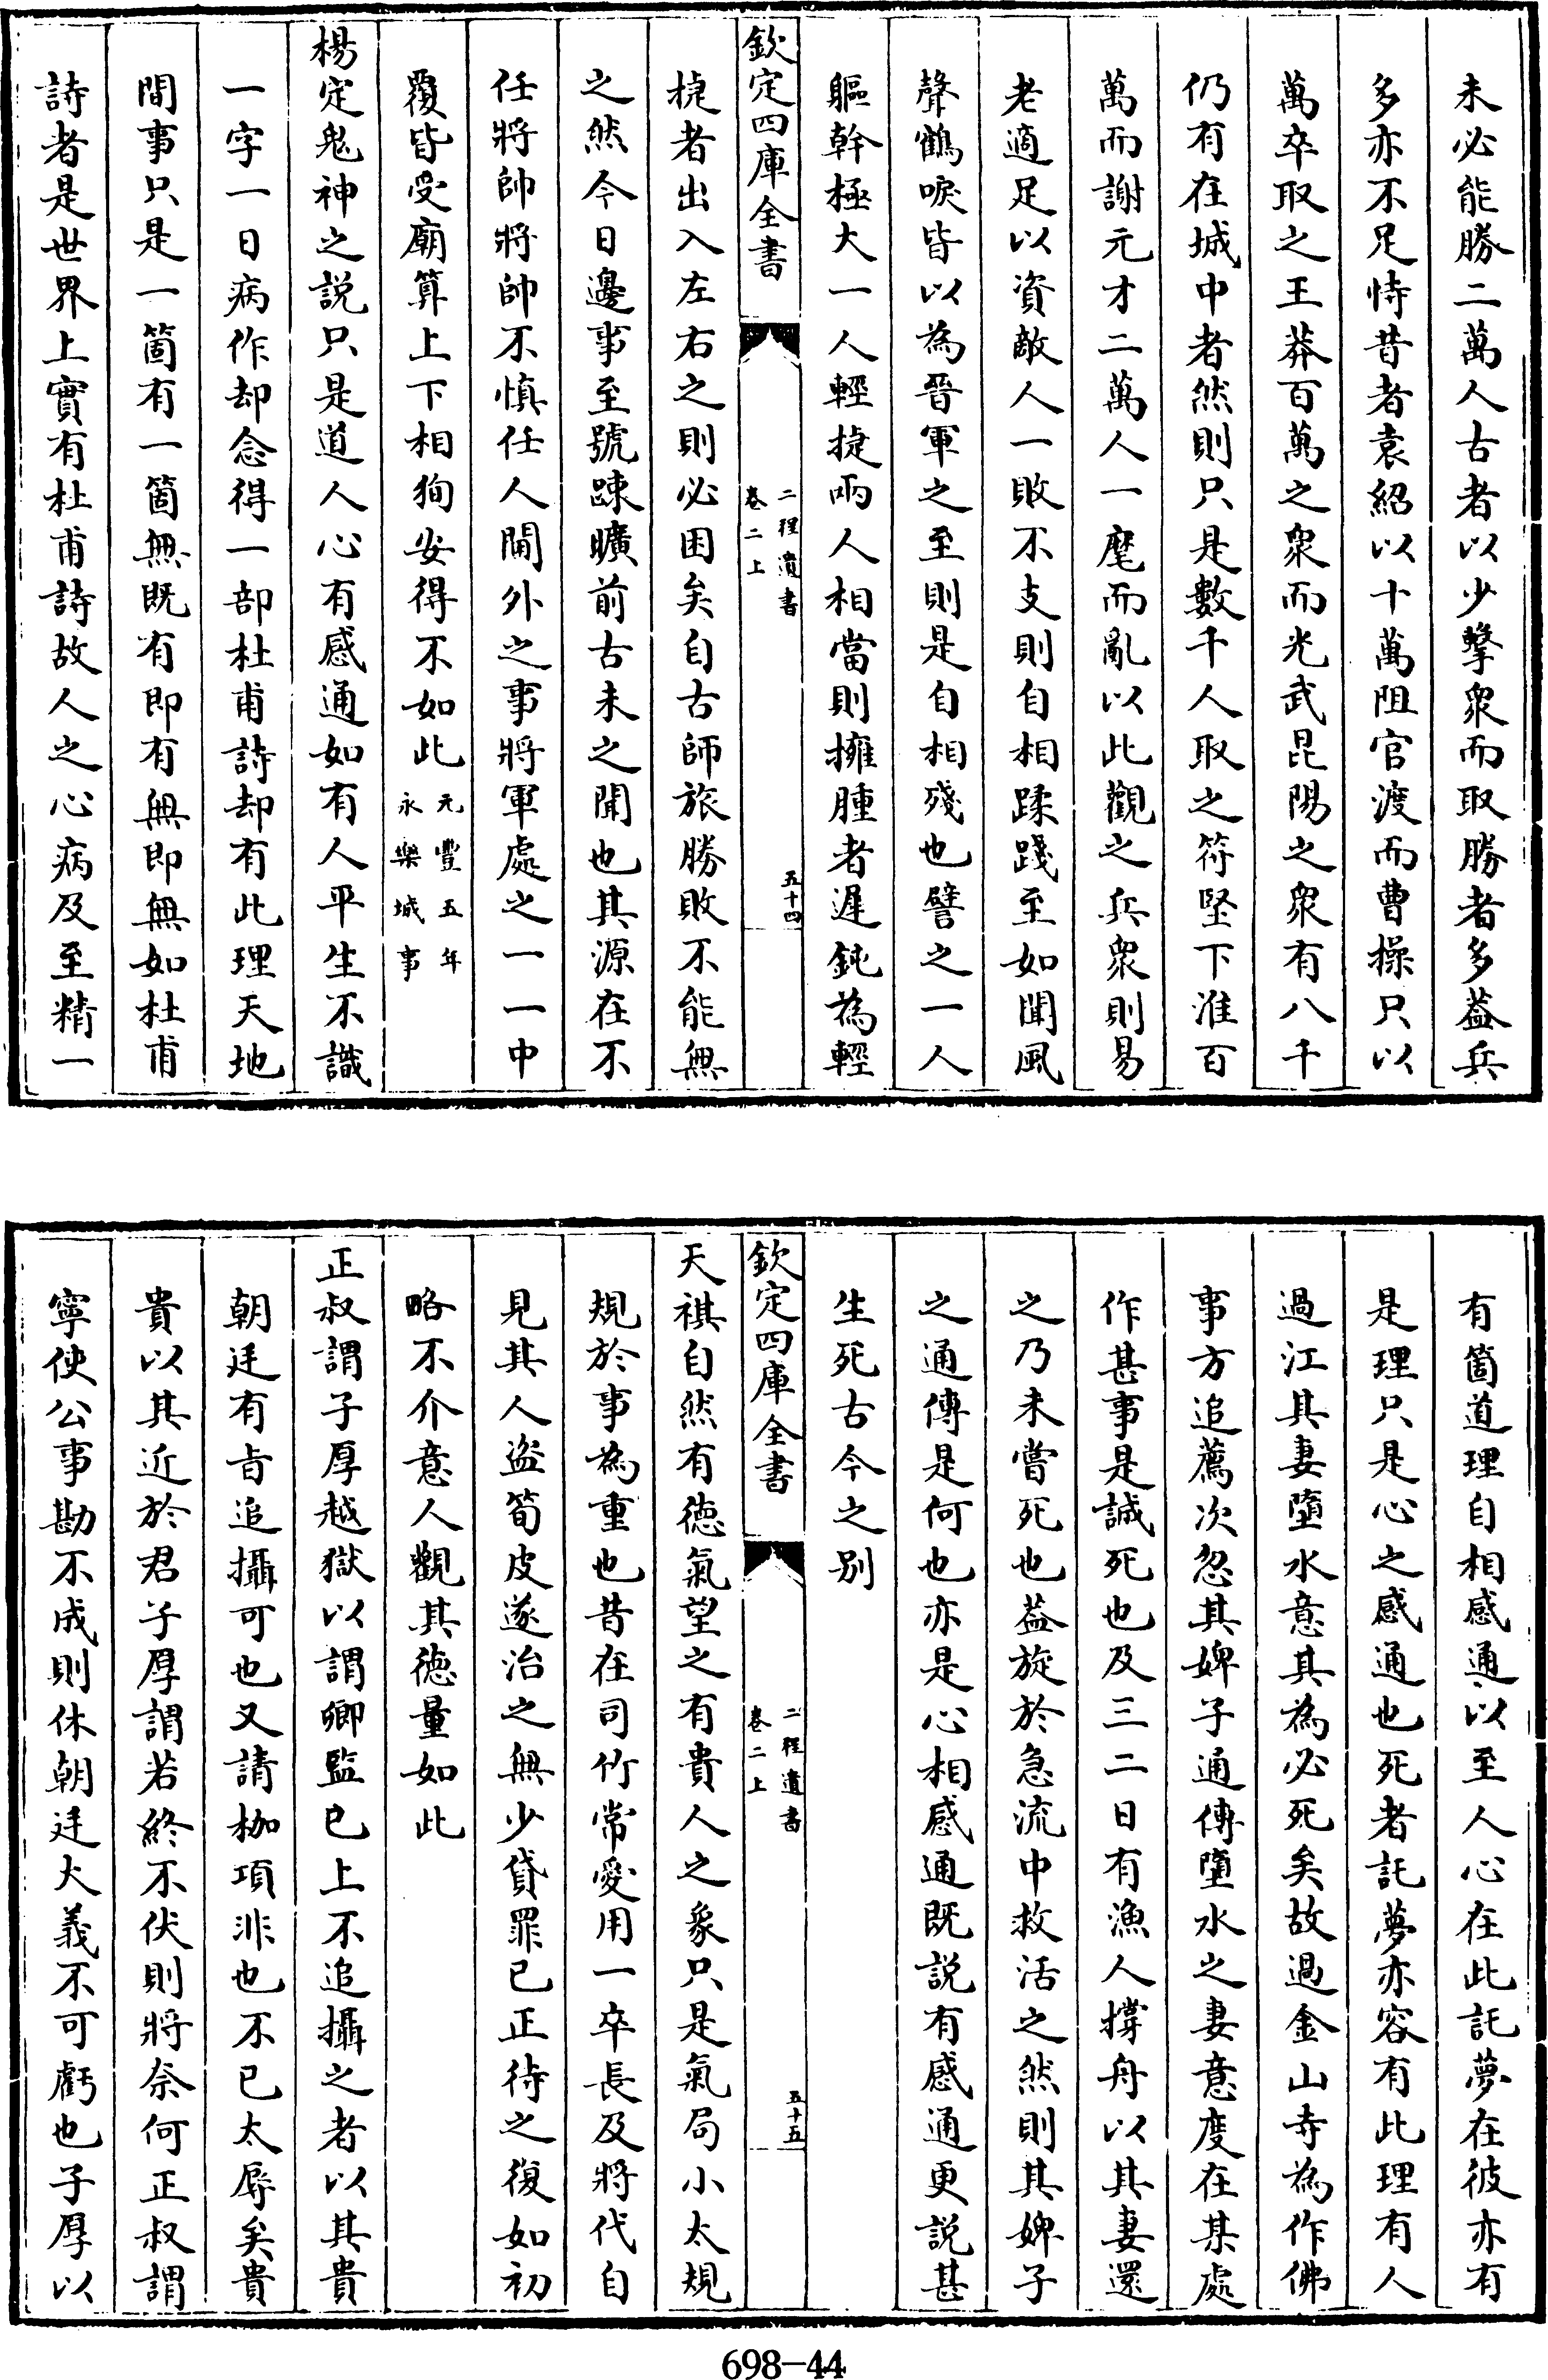 未必能勝二萬人古者以少擊衆而取勝者多葢兵
多亦不足恃昔者袁紹以十萬阻官渡而曹操只以
萬卒取之王莽百萬之衆而光武昆陽之衆有八千
仍有在城中者然則只是數千人取之符堅下淮百
萬而謝元才二萬人一麾而亂以此觀之兵衆則易
老適足以資敵人一敗不支則自相蹂踐至如聞風
聲鶴唳皆以為晉軍之至則是自相殘也譬之一人
軀幹極大一人輕捷兩人相當則擁腫者遲鈍為輕
欽定四庫全書
二程遺書
卷二上
五十四
捷者出入左右之則必困矣自古師旅勝敗不能無
之然今日邊事至號疎曠前古未之聞也其源在不
任將帥將帥不慎任人閫外之事將軍處之一一中
覆皆受廟算上下相狥安得不如此元豐五年永樂城事
楊定鬼神之說只是道人心有感通如有人平生不識
一字一日病作却念得一部杜甫詩却有此理天地
間事只是一箇有一箇無既有即有無即無如杜甫
詩者是世界上實有杜甫詩故人之心病及至精一
有箇道理自相感通以至人心在此託夢在彼亦有
是理只是心之感通也死者託夢亦容有此理有人
過江其妻墮水意其為必死矣故過金山寺為作佛
事方追薦次忽其婢子通傳墮水之妻意度在某處
作甚事是誠死也及三二日有漁人撐舟以其妻還
之乃未嘗死也葢旋於急流中救活之然則其婢子
之通傳是何也亦是心相感通既說有感通更說甚
生死古今之別
欽定四庫全書
二程遺書
卷二上
五十五
天祺自然有德氣望之有貴人之象只是氣局小太規
規於事為重也昔在司竹常愛用一卒長及將代自
見其人盜筍皮遂治之無少貸罪已正待之復如初
略不介意人觀其德量如此
正叔謂子厚越獄以謂卿監已上不追攝之者以其貴
朝廷有旨追攝可也又請枷項非也不已太辱矣貴
貴以其近於君子厚謂若終不伏則將奈何正叔謂
寧使公事勘不成則休朝廷大義不可虧也子厚以
698-44